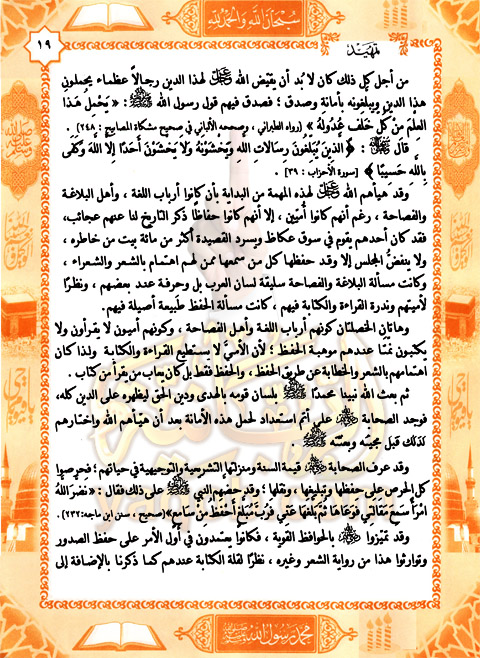 سُبْحَانَ اللَّه وَالْحَمْدُ لِلَّه
تمهيد
١٩
من أجل كل ذلك كان لا بُد أن يقيّض الله ﷻ لهذا الدين رجالاً عظماء يحملون
هذا الدين ويبلغونه بأمانة وصدق ؛ فصدق فيهم قول رسول الله ﷺ : « يَحْمِلُ هَذَا
العِلمَ مِنْ كُلِّ خَلَفٍ عُدُولُهُ » (رواه الطبراني ، وصححه الألباني في صحيح مشكاة المصابيح : ٢٤٨) .
قال ﷻ : ﴿ الَّذِينَ يُبَلِّغُونَ رِسَالَاتِ اللهِ وَيَخْشَوْنَهُ وَلَا يَخْشَوْنَ أَحَدًا إِلَّا اللهَ وَكَفَى
بِاللهِ حَسِيبًا ﴾ [سورة الأحزاب : ٣٩] .
وقد هيأهم الله ﷻ لهذه المهمة من البداية بأن كانوا أرباب اللغة ، وأهل البلاغة
والفصاحة ، رغم أنهم كانوا أُمِّيين ، إلا أنهم كانوا حفاظًا ذكر التاريخ لنا عنهم عجائب،
فقد كان أحدهم يقوم في سوق عكاظ ويسرد القصيدة أكثر من مائة بيت من خاطره ،
ولا ينفضُّ المجلس إلا وقد حفظها كل من سمعها ممن لهم اهتمام بالشعر والشعراء ،
وكانت مسألة البلاغة والفصاحة سليقة لسان العرب بل وحرفة عند بعضهم ، ونظرًا
لأميتهم وندرة القراءة والكتابة فيهم ، كانت مسألة الحفظ طبيعة أصيلة فيهم.
وهاتان الخصلتان كونهم أرباب اللغة وأهل الفصاحة ، وكونهم أميون لا يقرأون ولا
يكتبون نمَّتا عندهم موهبة الحفظ ؛ لأن الأميَّ لا يستطيع القراءة والكتابة ولذا كان
اهتمامهم بالشعر والخطابة عن طريق الحفظ ، والحفظ فقط بل كان يعاب من يقرأ من كتاب .
ثم بعث الله نبينا محمدًا ﷺ بلسان قومه بالهدى ودين الحق ليظهره على الدين كله،
فوجد الصحابة على أتم استعداد لحمل هذه الأمانة بعد أن هيأهم الله واختارهم
لذلك قبل مجيئه وبعثته ﷺ .
وقد عرف الصحابة قيمة السنة ومنزلتها التشريعية والتوجيهية في حياتهم ؛ فحرصوا
كل الحرص على حفظها وتبليغها ، ونقلها ؛ وقد حضهم النبي ﷺ على ذلك فقال : « نَضَّرَ اللهُ
امْرَأً سَمِعَ مَقَالَتِي فَوَعَاهَا ثُمَّ بَلَّغَهَا عَنِّي فَرُبَّ مُبَلَّغٍ أَحْفَظُ مِنْ سَامِعٍ»(صحيح ، سنن ابن ماجه:٢٣٢).
وقد تميّزوا بالحوافظ القوية ، فكانوا يعتمدون في أول الأمر على حفظ الصدور
وتوارثوا هذا من رواية الشعر وغيره ، نظرًا لقلة الكتابة عندهم كما ذكرنا بالإضافة إلى
محمد رسول الله